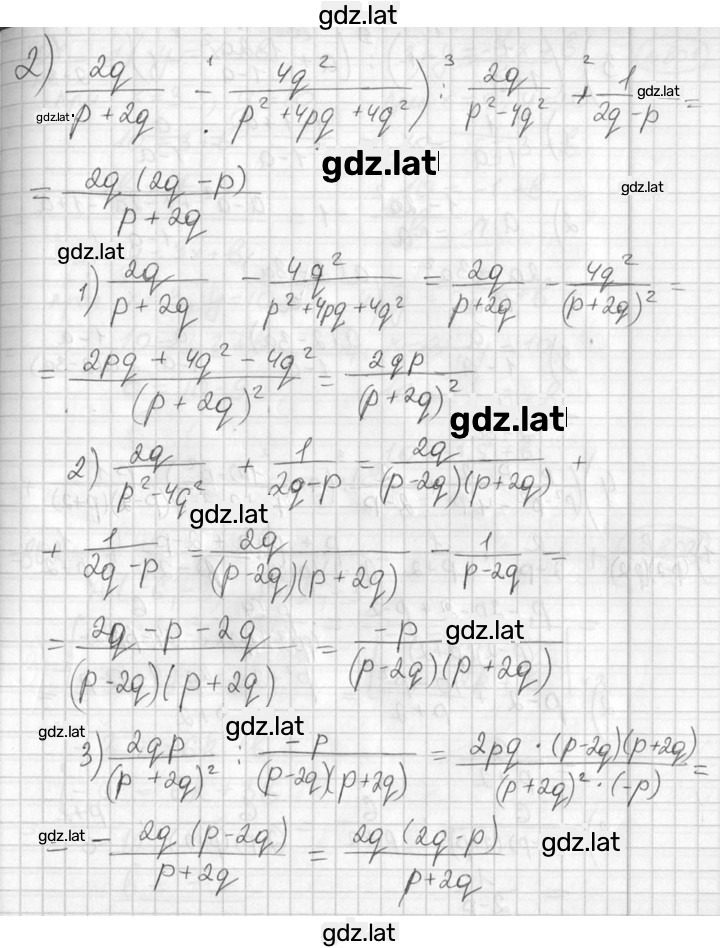 gdz.lat
2) 2q/(p + 2q) -¹ 4q²/(p² + 4pq + 4q²)) :³ 2q/(p² - 4q²) +² 1/(2q - p) =
gdz.lat
gdz.lat
gdz.lat
= 2q (2q - p)/(p + 2q)
gdz.lat
gdz.lat
1) 2q/(p + 2q) - 4q²/(p² + 4pq + 4q²) = 2q/(p + 2q) - 4q²/(p + 2q)² =
= (2pq + 4q² - 4q²)/(p + 2q)² = 2qp/(p + 2q)²
gdz.lat
2) 2q/(p² - 4q²) + 1/(2q - p) = 2q/((p - 2q)(p + 2q)) +
gdz.lat
+ 1/(2q - p) = 2q/((p - 2q)(p + 2q)) - 1/(p - 2q) =
= (2q - p - 2q)/((p - 2q)(p + 2q)) = -p/((p - 2q)(p + 2q))
gdz.lat
gdz.lat
gdz.lat
3) 2qp/(p + 2q)² : -p/((p - 2q)(p + 2q)) = 2pq · (p - 2q)(p + 2q)/((p + 2q)² · (-p)) =
gdz.lat
= - 2q (p - 2q)/(p + 2q) = 2q (2q - p)/(p + 2q)
gdz.lat
gdz.lat